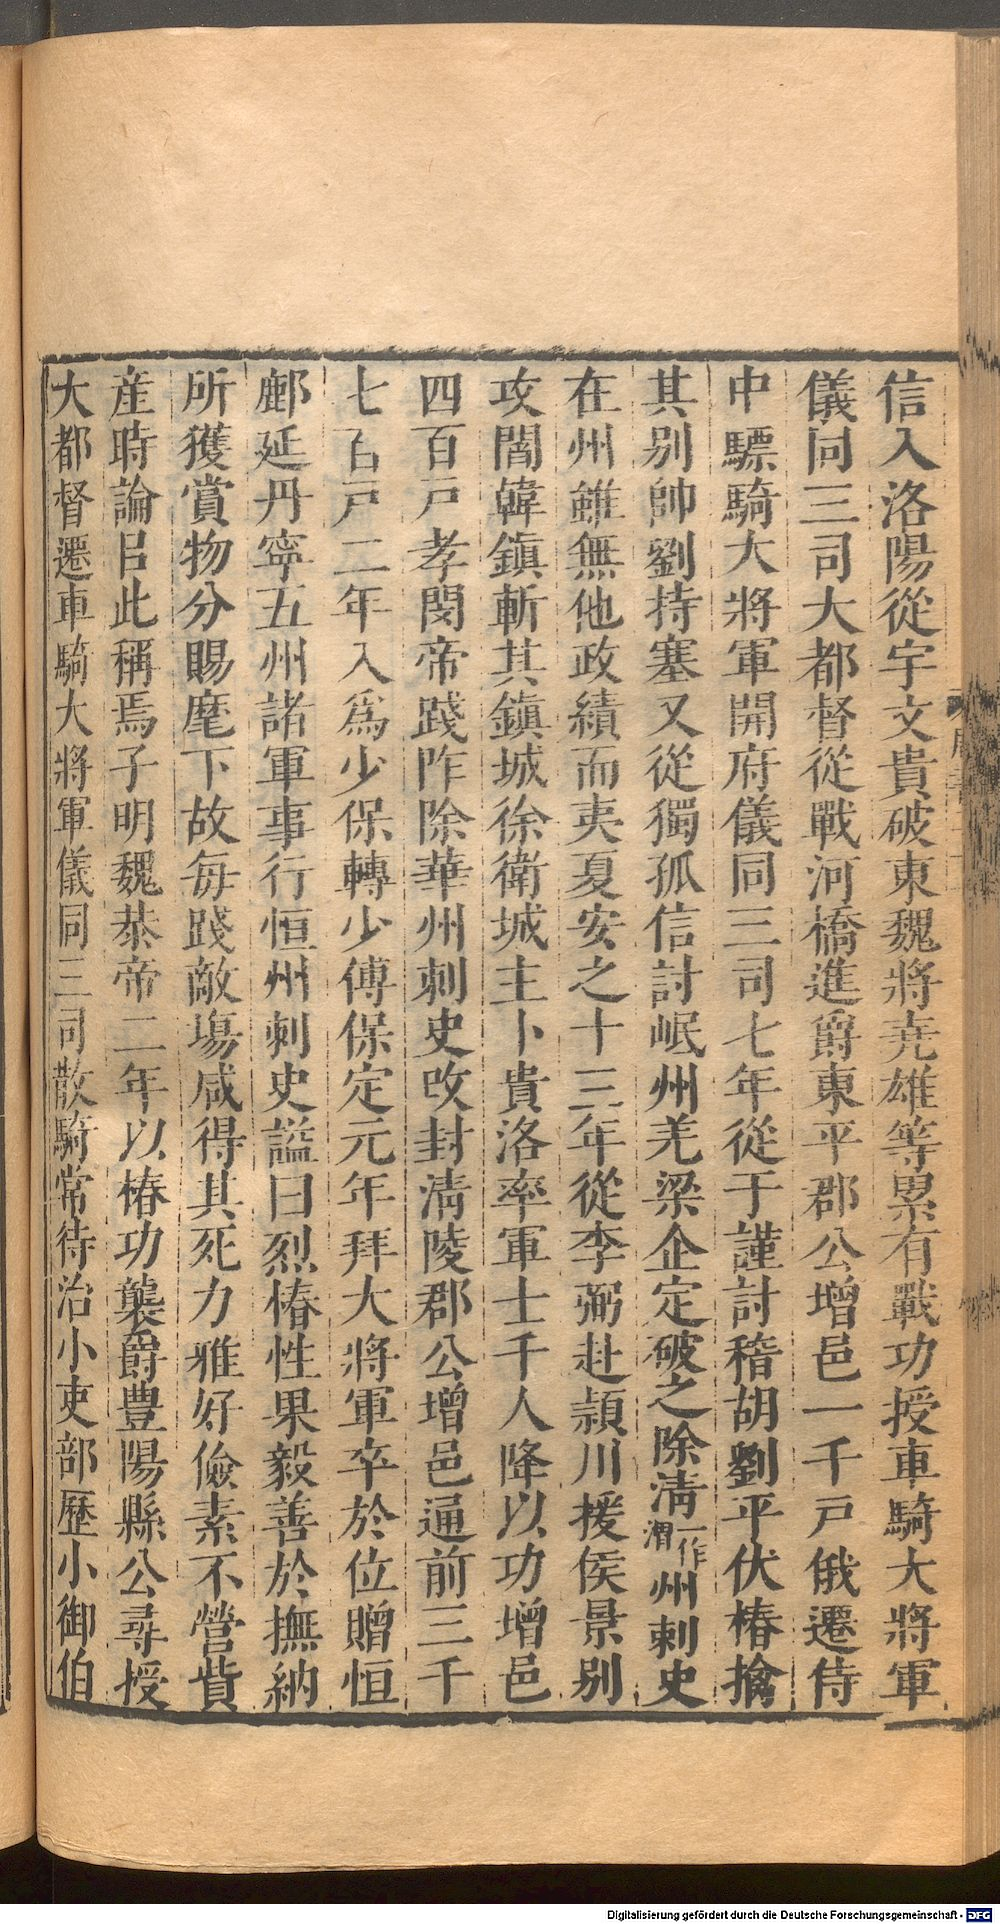 信入洛陽從宇文貴破東魏將尭雄等累有戰功授車騎大將軍
儀同三司大都督從戰河橋進爵東平郡公增邑一千戸俄遷侍
中驃騎大將軍開府儀同三司七年從于謹討稽胡劉平伏椿擒
其别帥劉持塞又從獨孤信討岷州羌梁企定破之除淸一作渭州刺史
在州雖無他政績而夷夏安之十三年從李弼赴潁川援侯景别
攻閻韓鎮斬其鎮城徐衛城主卜貴洛率軍士千人降以功增邑
四百戸孝閔帝踐阼除華州刺史改封淸陵郡公增邑通前三千
七百戸二年入爲少保轉少傅保定元年拜大將軍卒於位贈恒
鄜延丹寧五州諸軍事行恒州刺史謚曰烈椿性果毅善於撫納
所獲賞物分賜麾下故毎踐敵塲咸得其死力雅好儉素不營貲
産時論㠯此稱焉子明魏恭帝二年以椿功襲爵豊陽縣公尋授
大都督遷車騎大將軍儀同三司散騎常侍治小吏部歴小御伯
Digitalisierung gefördert durch die Deutsche Forschungsgemeinschaft - DFG